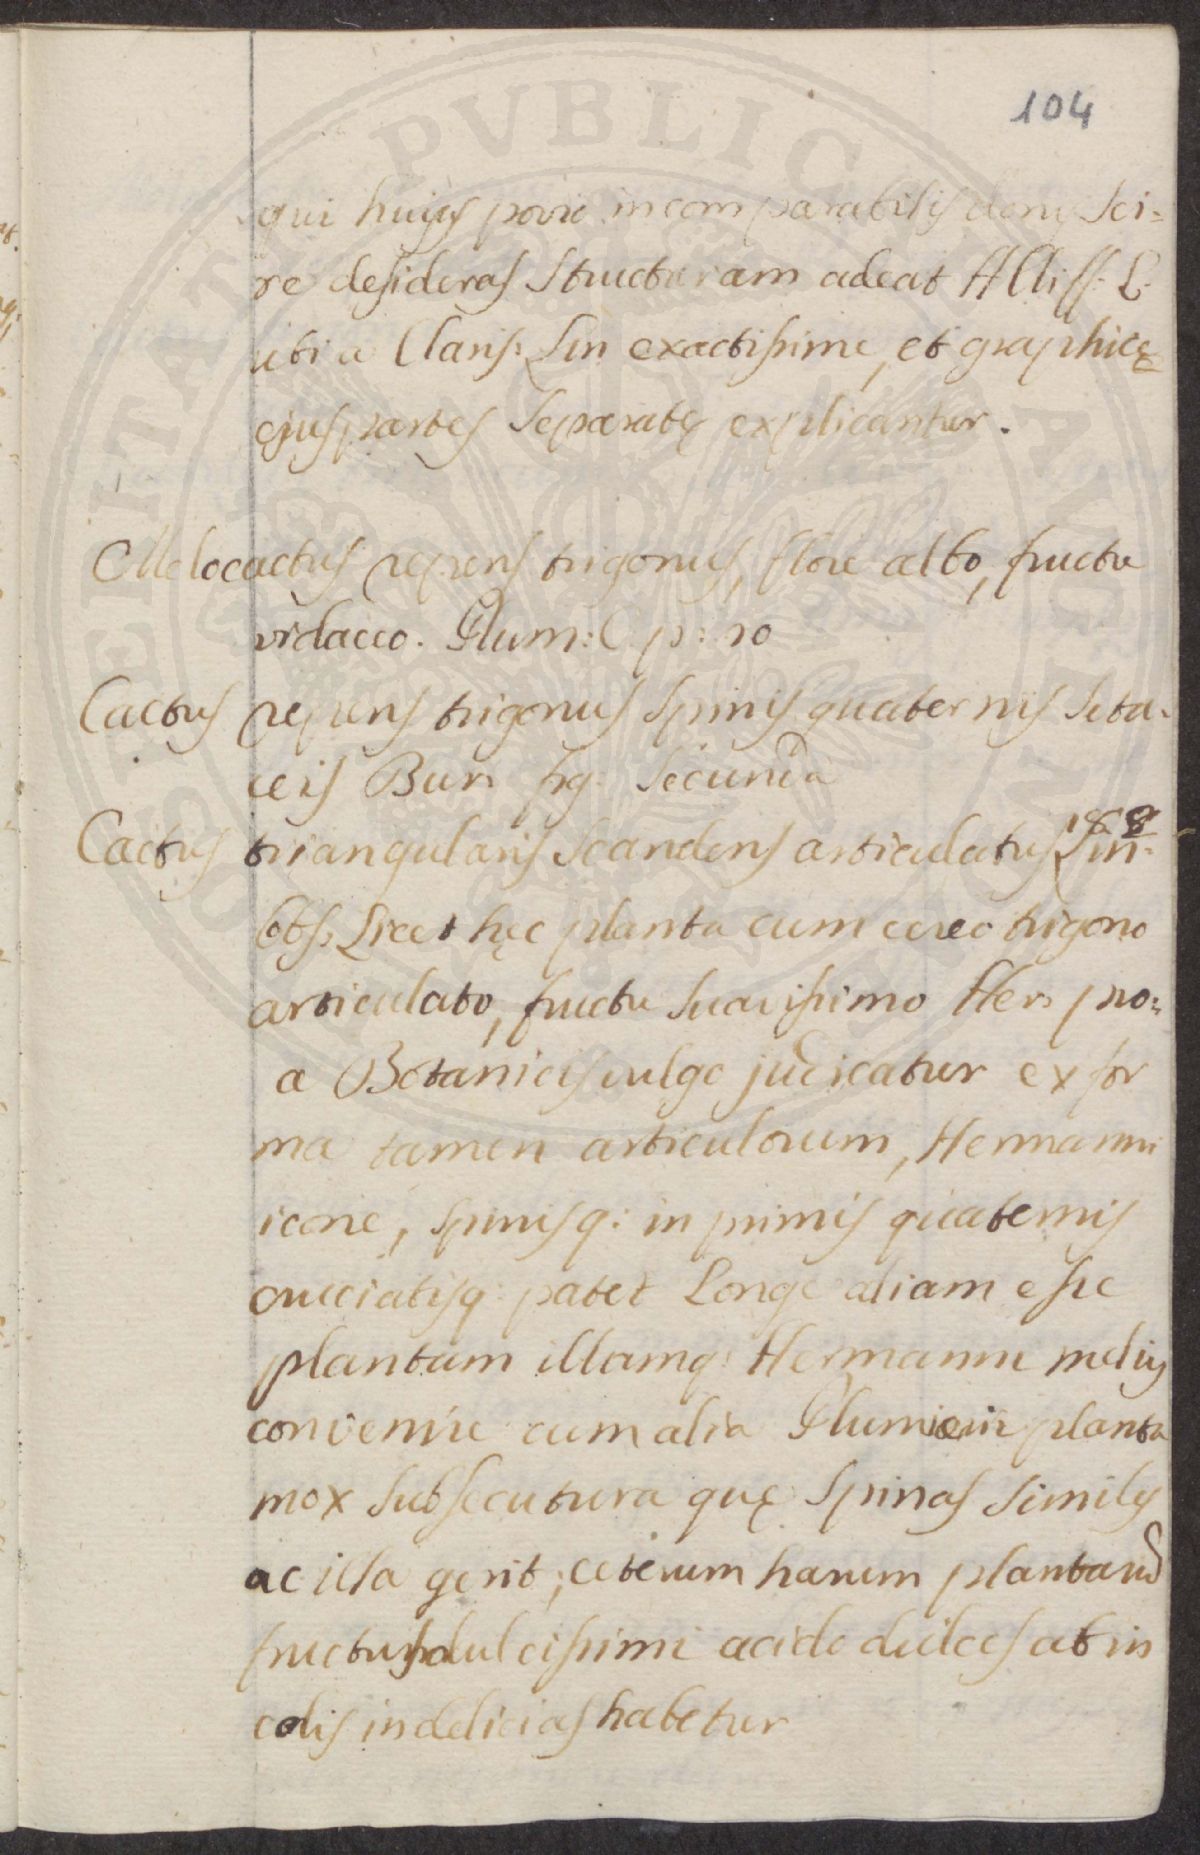 104
qui hujus porro incomparabilis deniq sci=
re desideras structuram adeat Alliss: L.
ubi a Clariss: Lin exactissime, et graphicę
ejus partes separatę explicantur.
Melocactus repens trigonus, flore albo, fructu
violaceo. Plum: C. p: 10
Cactus repens trigonus spinis quaternis seta-
ceis Bur. fig: secunda
Cactus triangularis scandens articulatus Lin.
obs. Licet hęc planta cum cereo trigono
articulato, fructu suavissimo Her. pro=
a Botanicis vulgo judicatur ex for
ma tamen articulorum, Hermanni
icone, spinisq: in primis quaternis
cruciatisq: patet Longe aliam esse
plantam illamq: Hermanni melius
convenire cum alia Plumieri planta
mox subsecutura quę spinas similes
ac illa gerit; ceterum harum plantarum
fructus dulcissimi acido dulces ab in
colis in delicias habetur
PVBLIC